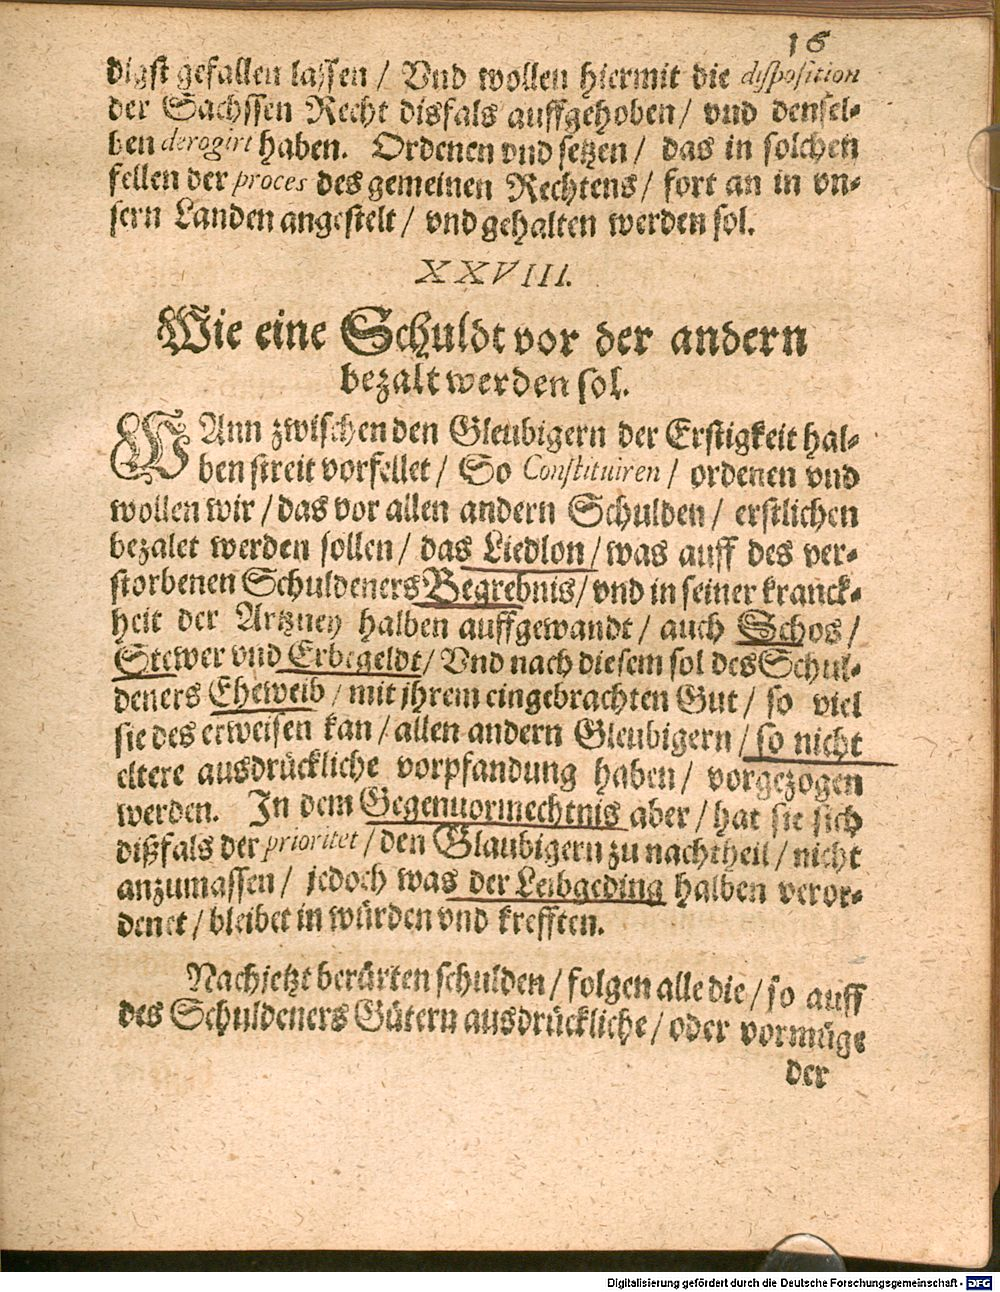 16
digst gefallen lassen / Vnd wollen hiermit die disposition
der Sachssen Recht disfals auffgehoben / vnd densel-
ben derogirt haben. Ordenen vnd setzen / das in solchen
fellen der proces des gemeinen Rechtens / fort an in vn-
sern Landen angestelt / vnd gehalten werden sol.
XXVIII.
Wie eine Schuldt vor der andern
bezalt werden sol.
WAnn zwischen den Gleubigern der Erstigkeit hal-
ben streit vorfellet / So Constituiren / ordenen vnd
wollen wir / das vor allen andern Schulden / erstlichen
bezalet werden sollen / das Liedlon / was auff des ver-
storbenen Schuldeners Begrebnis / vnd in seiner kranck-
heit der Artzney halben auffgewandt / auch Schos /
Stewer vnd Erbegeldt / Vnd nach diesem sol des Schul-
deners Eheweib / mit jhrem eingebrachten Gut / so viel
sie des erweisen kan / allen andern Gleubigern / so nicht
eltere ausdrückliche vorpfandung haben / vorgezogen
werden. In dem Gegenuormechtnis aber / hat sie sich
dißfals der prioritet / den Glaubigern zu nachtheil / nicht
anzumassen / jedoch was der Leibgeding halben veror-
denet / bleibet in würden vnd krefften.
Nach jetzt berürten schulden / folgen alle die / so auff
des Schuldeners Gütern ausdrückliche / oder vormüge
der
Digitalisierung gefördert durch die Deutsche Forschungsgemeinschaft - DFG